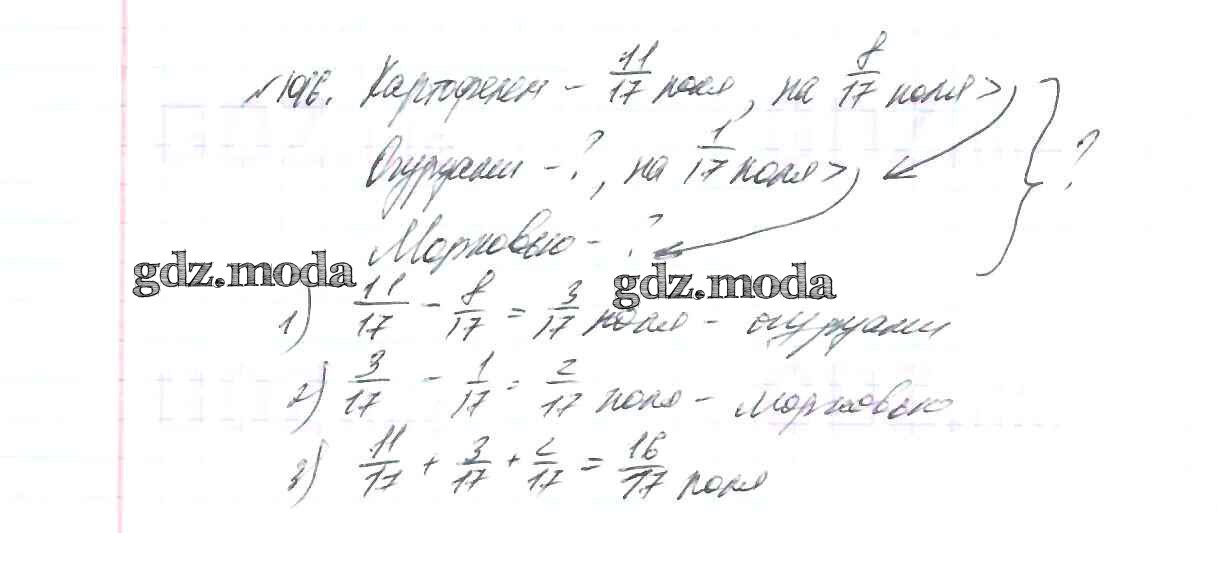 Картофелем - 11/17 поля, на 8/17 поля >
Огурцами - ?, на 1/17 поля > ?
Морковью - ?
gdz.moda gdz.moda
1) 11/17 - 8/17 = 3/17 поля - огурцами
2) 3/17 - 1/17 = 2/17 поля - морковью
3) 11/17 + 3/17 + 2/17 = 16/17 поля